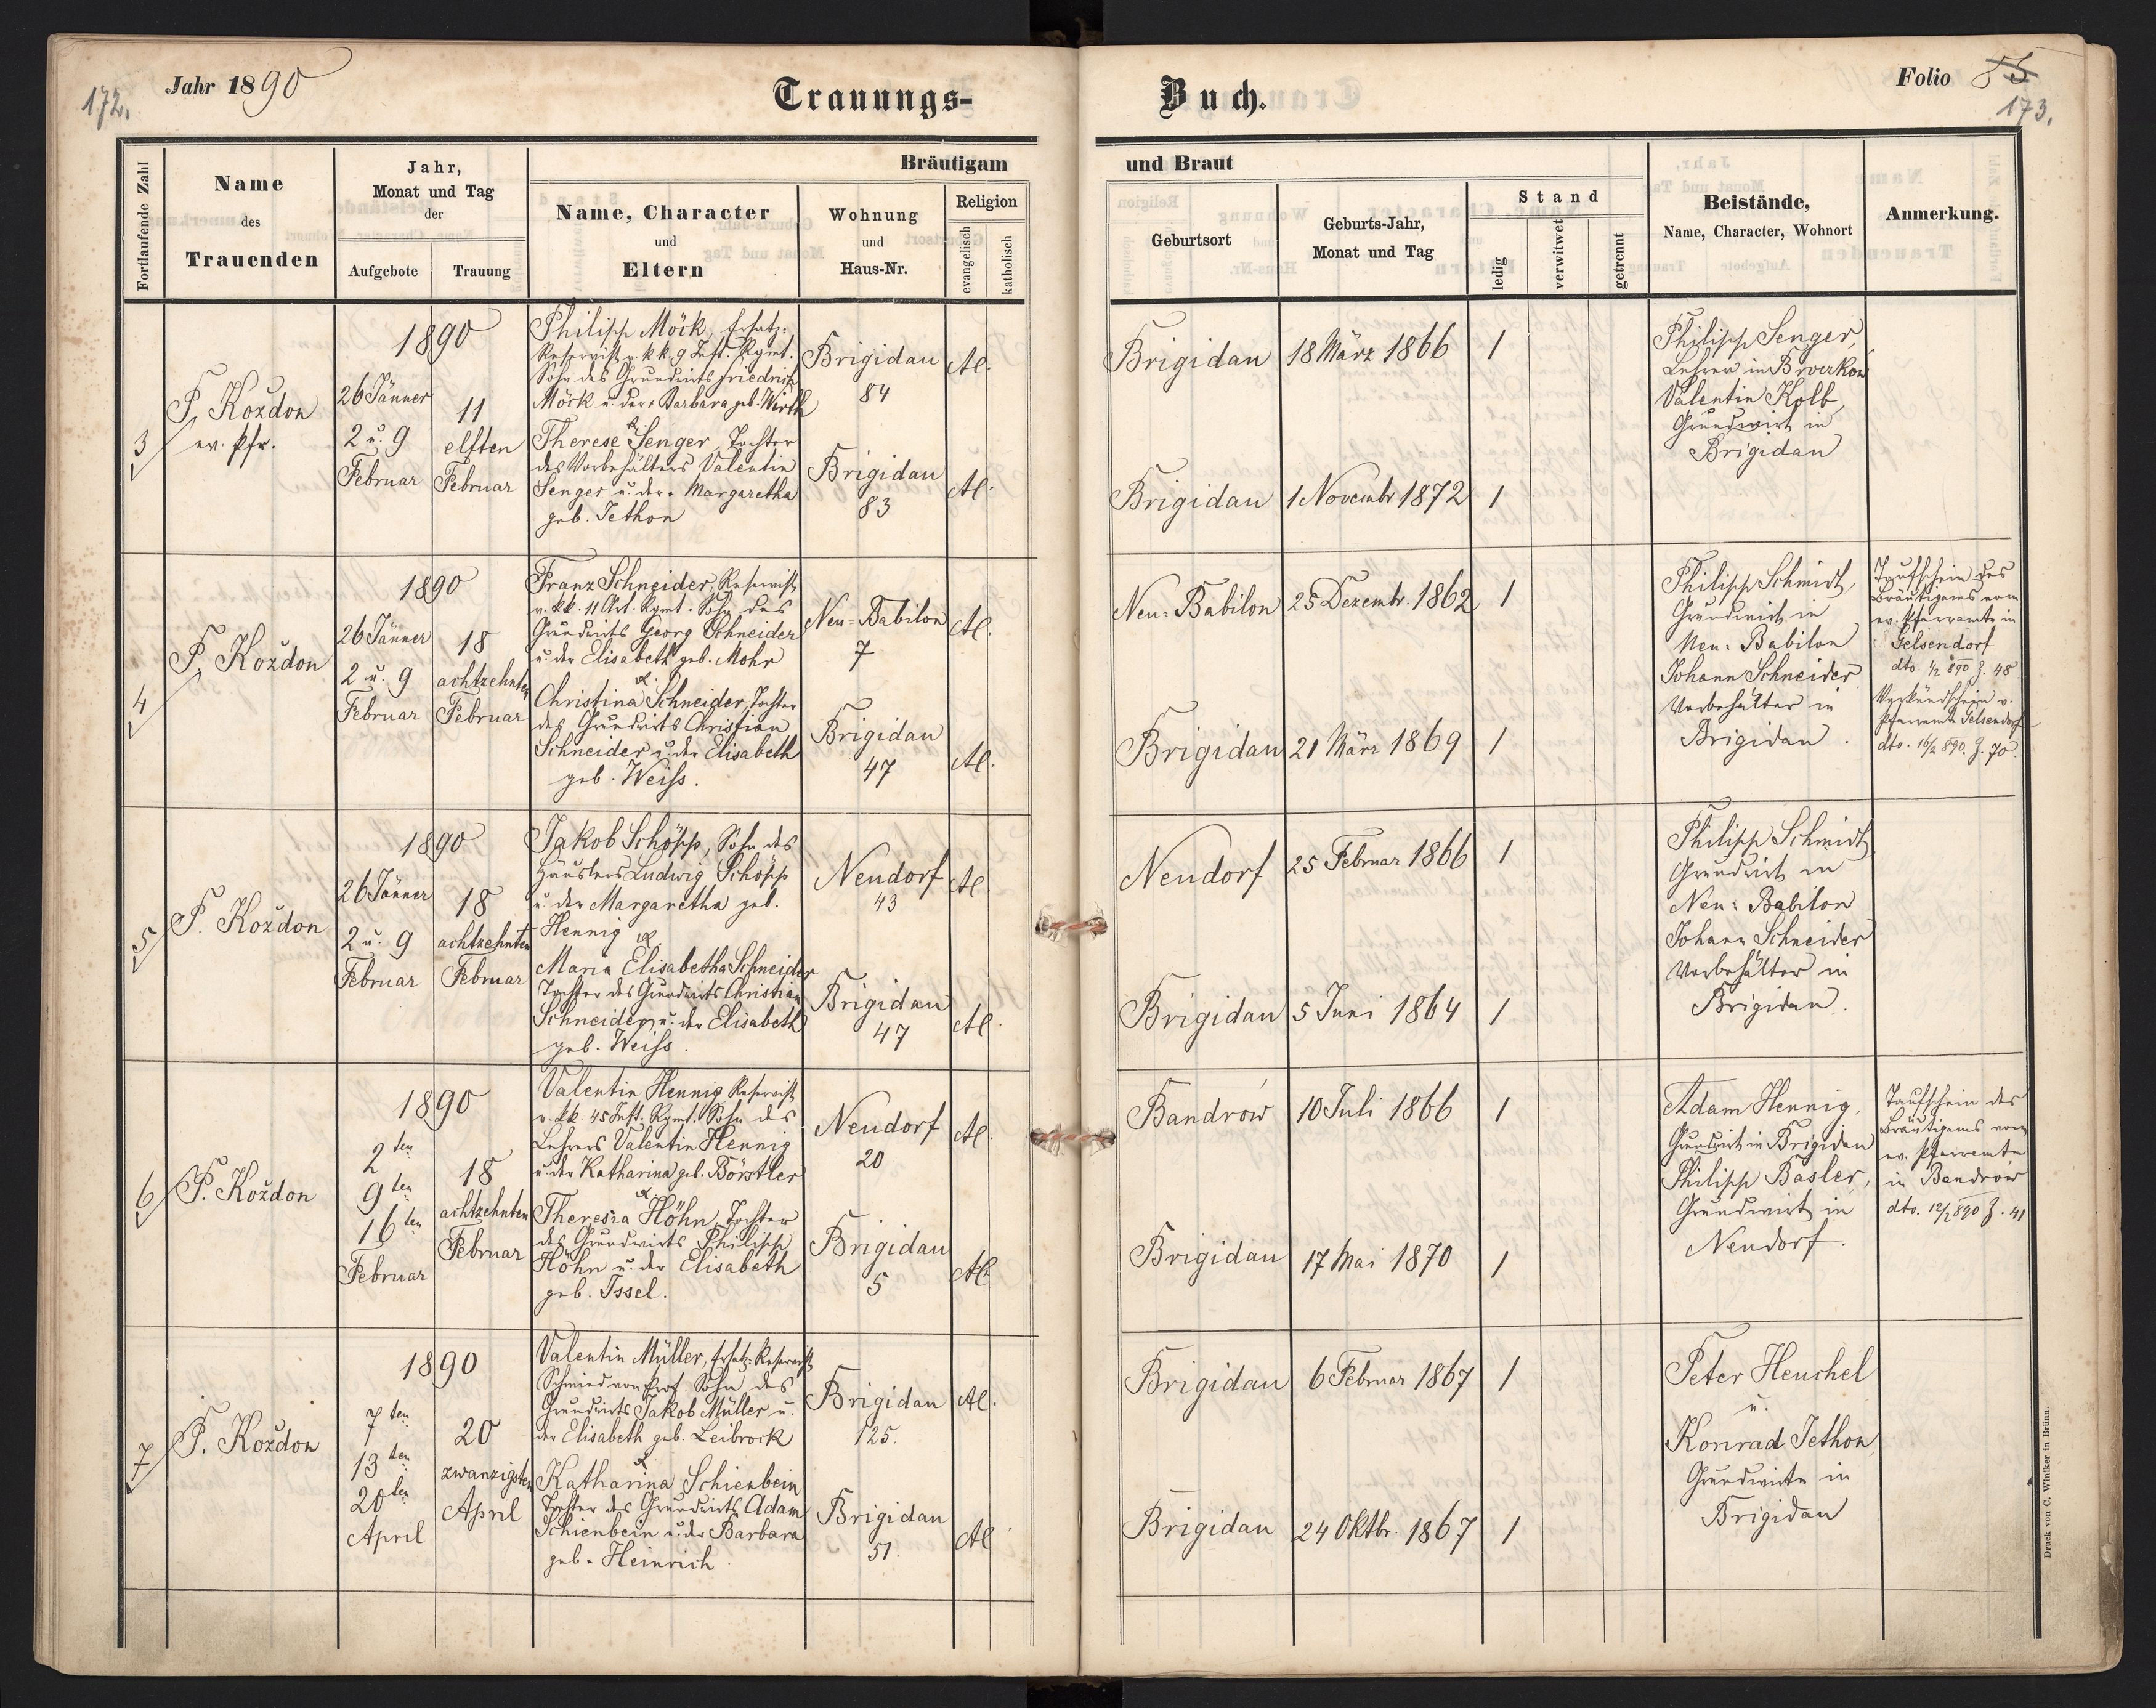 172.
Jahr 1890
Trauungs-
Fortlaufende Zahl
Name
des
Trauenden
Jahr,
Monat und Tag
der
Aufgebote
Trauung
Bräutigam
Name, Character
und
Eltern
Wohnung
und
Haus-Nr.
Religion
evangelisch
katholisch
3
F. Koždon
ev. Pfr.
1890
26 Jänner
2 u. 9
Februar
11
elften
Februar
Philipp Möck, Ersatz-
Reservist v. k.k. 9 Inft. Rgmt.
Sohn des Grundwirts Friedrich
Möck u. der Barbara geb. Wirth
&
Therese Senger, Tochter
des Vorbehälters Valentin
Senger u. der Margaretha
geb. Jethon
Brigidau
84
Brigidau
83
AC.
AC.
4
F. Koždon
1890
26 Jänner
2 u. 9
Februar
18
achtzehnten
Februar
Franz Schneider, Reservist
v. k.k. 11 Art. Rgmt. Sohn des
Grundwirts Georg Schneider
u. der Elisabeth geb. Mohr
&
Christina Schneider, Tochter
des Grundwirts Christian
Schneider u. der Elisabeth
geb. Weiss.
Neu-Babilon
7
Brigidau
47
AC.
AC.
5
F. Koždon
1890
26 Jänner
2 u. 9
Februar
18
achtzehnten
Februar
Jakob Schöpp, Sohn des
Häuslers Ludwig Schöpp
u. der Margaretha geb.
Hennig &
Maria Elisabetha Schneider
Tochter des Grundwirts Christian
Schneider u. der Elisabeth
geb. Weiss.
Neudorf
43
Brigidau
47
AC.
AC.
6
F. Koždon
1890
2ten
9ten
16ten
Februar
18
achtzehnten
Februar
Valentin Hennig Reservist
v. k.k. 45 Inft. Rgmt. Sohn des
Lehrers Valentin Hennig
u. der Katharina geb. Börstler
&
Theresia Höhn, Tochter
des Grundwirts Philipp
Höhn u. der Elisabeth
geb. Issel.
Neudorf
20
Brigidau
5
AC.
AC
7
F. Koždon
1890
7ten
13ten
20ten
April
20
zwanzigsten
April
Valentin Müller, Ersatz-Reservist
Schmied von Prof. Sohn des
Grundwirts Jakob Müller u.
der Elisabeth geb. Leibrock
&
Katharina Schienbein
Tochter des Grundwirts Adam
Schienbein u. der Barbara
geb. Heinrich.
Brigidau
125.
Brigidau
51.
AC.
AC
Buch.
Folio 85
173.
und Braut
Geburtsort
Geburts-Jahr,
Monat und Tag
Stand
ledig
verwitwet
getrennt
Beistände,
Name, Character, Wohnort
Anmerkung.
Brigidau 18 März 1866 1
Brigidau 1 Novembr 1872 1
Philipp Senger,
Lehrer in
Valentin Kolb,
Grundwirt in
Brigidau
Neu-Babilon 25 Dezembr. 1862 1
Brigidau 21 März 1869 1
Philipp Schmidt,
Grundwirt in
Neu-Babilon
Johann Schneider
Vorbehälter in
Brigidau.
Taufschein des
Bräutigams vom
ev. Pfarramte in
Gelsendorf
dto. 1/2 890 Z. 48
Verkündschein v.
Pfarramte Gelsendorf
dto. 16/2 890. Z. 70.
Neudorf 25 Februar 1866 1
Brigidau 5 Juni 1864 1
Philipp Schmidt,
Grundwirt in
Neu-Babilon
Johann Schneider
Vorbehälter in
Brigidau.
Bandrów 10 Juli 1866 1
Brigidau 17 Mai 1870 1
Adam Hennig,
Grundwirt in Brigidau
Philipp Basler,
Grundwirt in
Neudorf.
Taufschein des
Bräutigams vom
ev. Pfarramte
in Bandrów
dto. 12/2 890 Z. 41
Brigidau 6 Februar 1867 1
Brigidau 24 Oktbr. 1867 1
Peter Heuchel
u.
Konrad Jethon,
Grundwirte in
Brigidau
Druck von C. Winiker in Brünn.